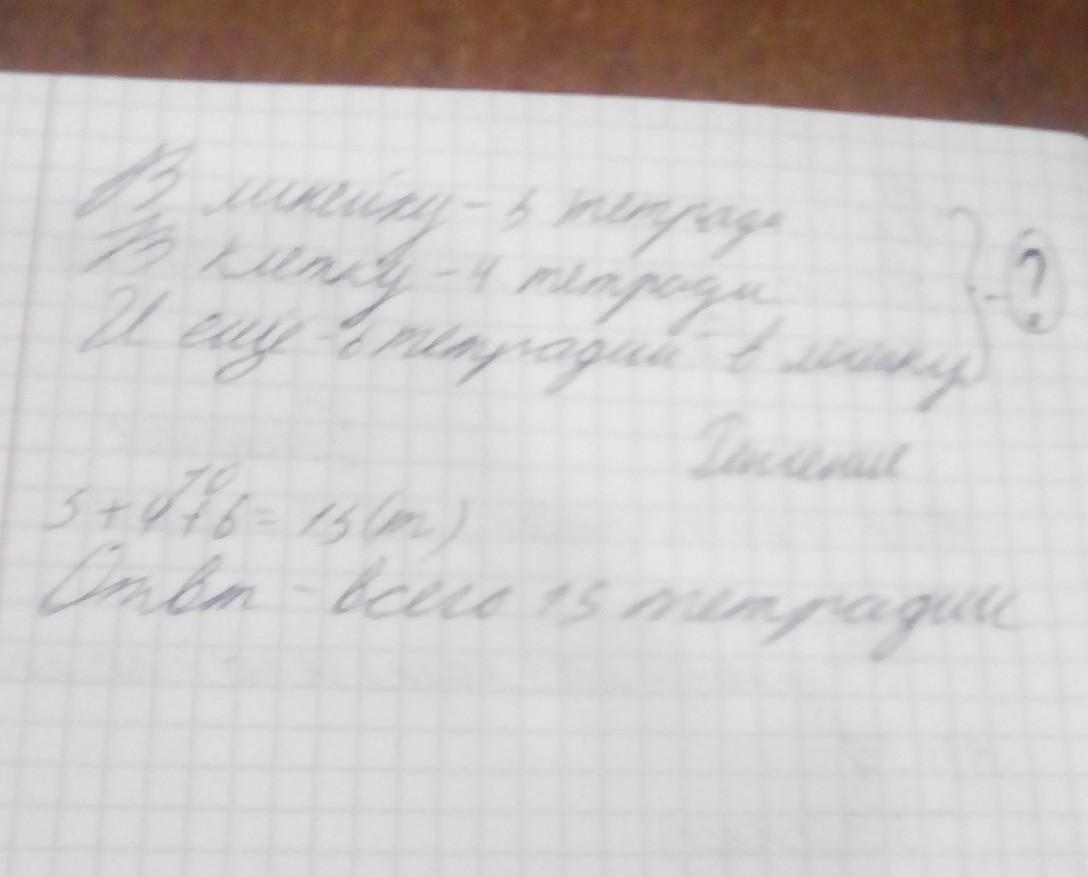 В линейку - 5 тетради
В клетку - 4 тетради
И ещё - 6 тетрадий в линику } - ?
Решение
10
5+4+6= 15(т)
Отвт - всего 15 тетрадий